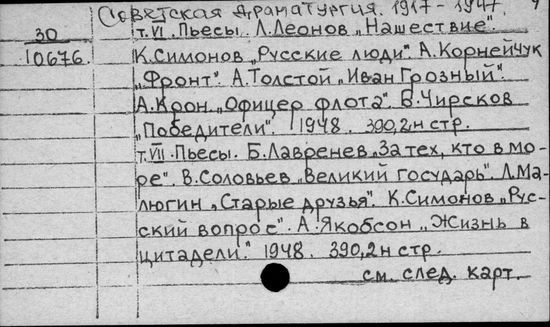 Советская драматургия. 1917-1947.
30
т. VI. Пьесы. Л. Леонов „Нашествие".
10676
К. Симонов „Русские люди". А. Корнейчук
„Фронт". А. Толстой „Иван Грозный".
А. Крон „Офицер флота". Б. Чирсков
„Победители". 1948. 390,2н стр.
т. VII. Пьесы. Б. Лавренев „За тех, кто в мо-
ре". В. Соловьев „Великий государь". Л. Ма-
люгин „Старые друзья". К. Симонов „Рус-
ский вопрос". А. Якобсон „Жизнь в
цитадели." 1948. 390,2н стр.
см. след. карт.